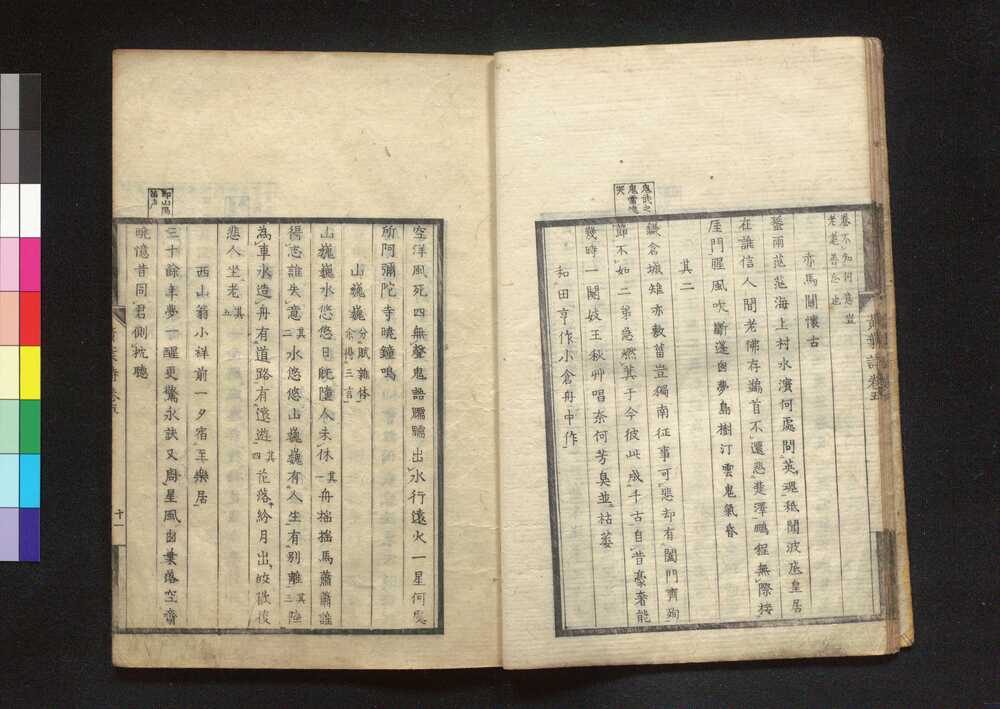 卷不知何意豈
老是善忘也
赤馬關懷古
蜑雨茫茫海上村水濱何處問英魂秪聞波底皇居
在誰信人間老佛存鷁首不還悲楚澤鵬程無際接
厓門腥風吹斷蓬窗夢島樹汀雲鬼氣昏
其二
鎌倉城雉亦敷菑豈獨南征事可悲却有闔門齊殉
節不如二弟急燃萁于今彼此成千古自昔豪奢能
幾時一闋妓王秋艸唱奈何芳臭並枯萎
和田亨作小倉舟中作
黃葉詩卷五
空洋風死四無聲鬼語嘂嘂出水行遠火一星何處
所阿彌陀寺曉鐘鳴
山巍巍 分賦雜体余得三言
山巍巍水悠悠日旣墮人未休 其一 舟搖搖馬蕭蕭誰
得志誰失意 其二 水悠悠山巍巍有人生有別離 其三 陸
爲車水造舟有道路有遠遊 其四 花落紛月出皎歡後
悲人坐老 其五
西山翁小祥前一夕宿至樂居
三十餘年夢一醒更驚永訣又周星風窗葉落空齋
曉憶昔同君側枕聽
十一